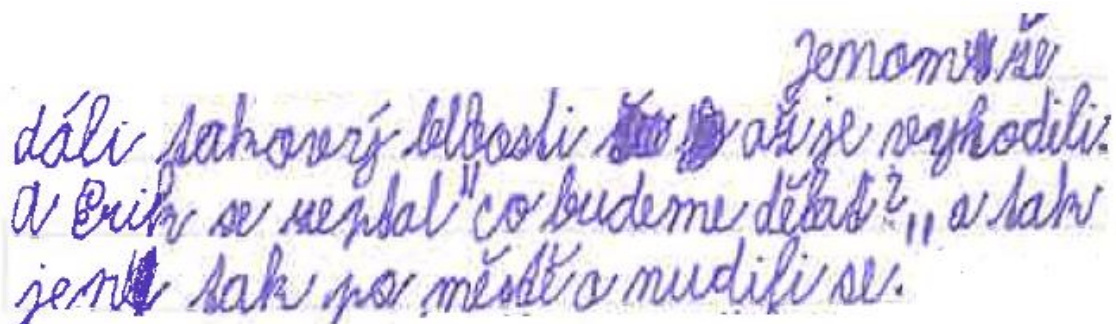 jenom že
dáli takový blbosti až je vyhodili.
A Erik se zeptal "co budeme dělat?,, a tak
jen tak po městě a nudili se.